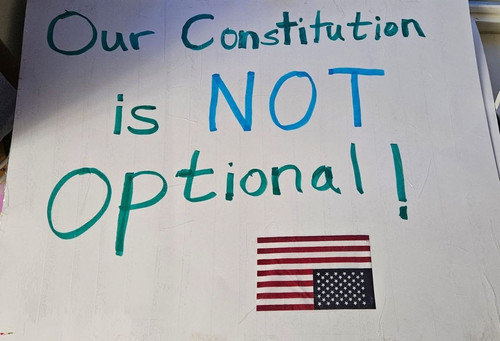 Our Constitution
is NOT
Optional!